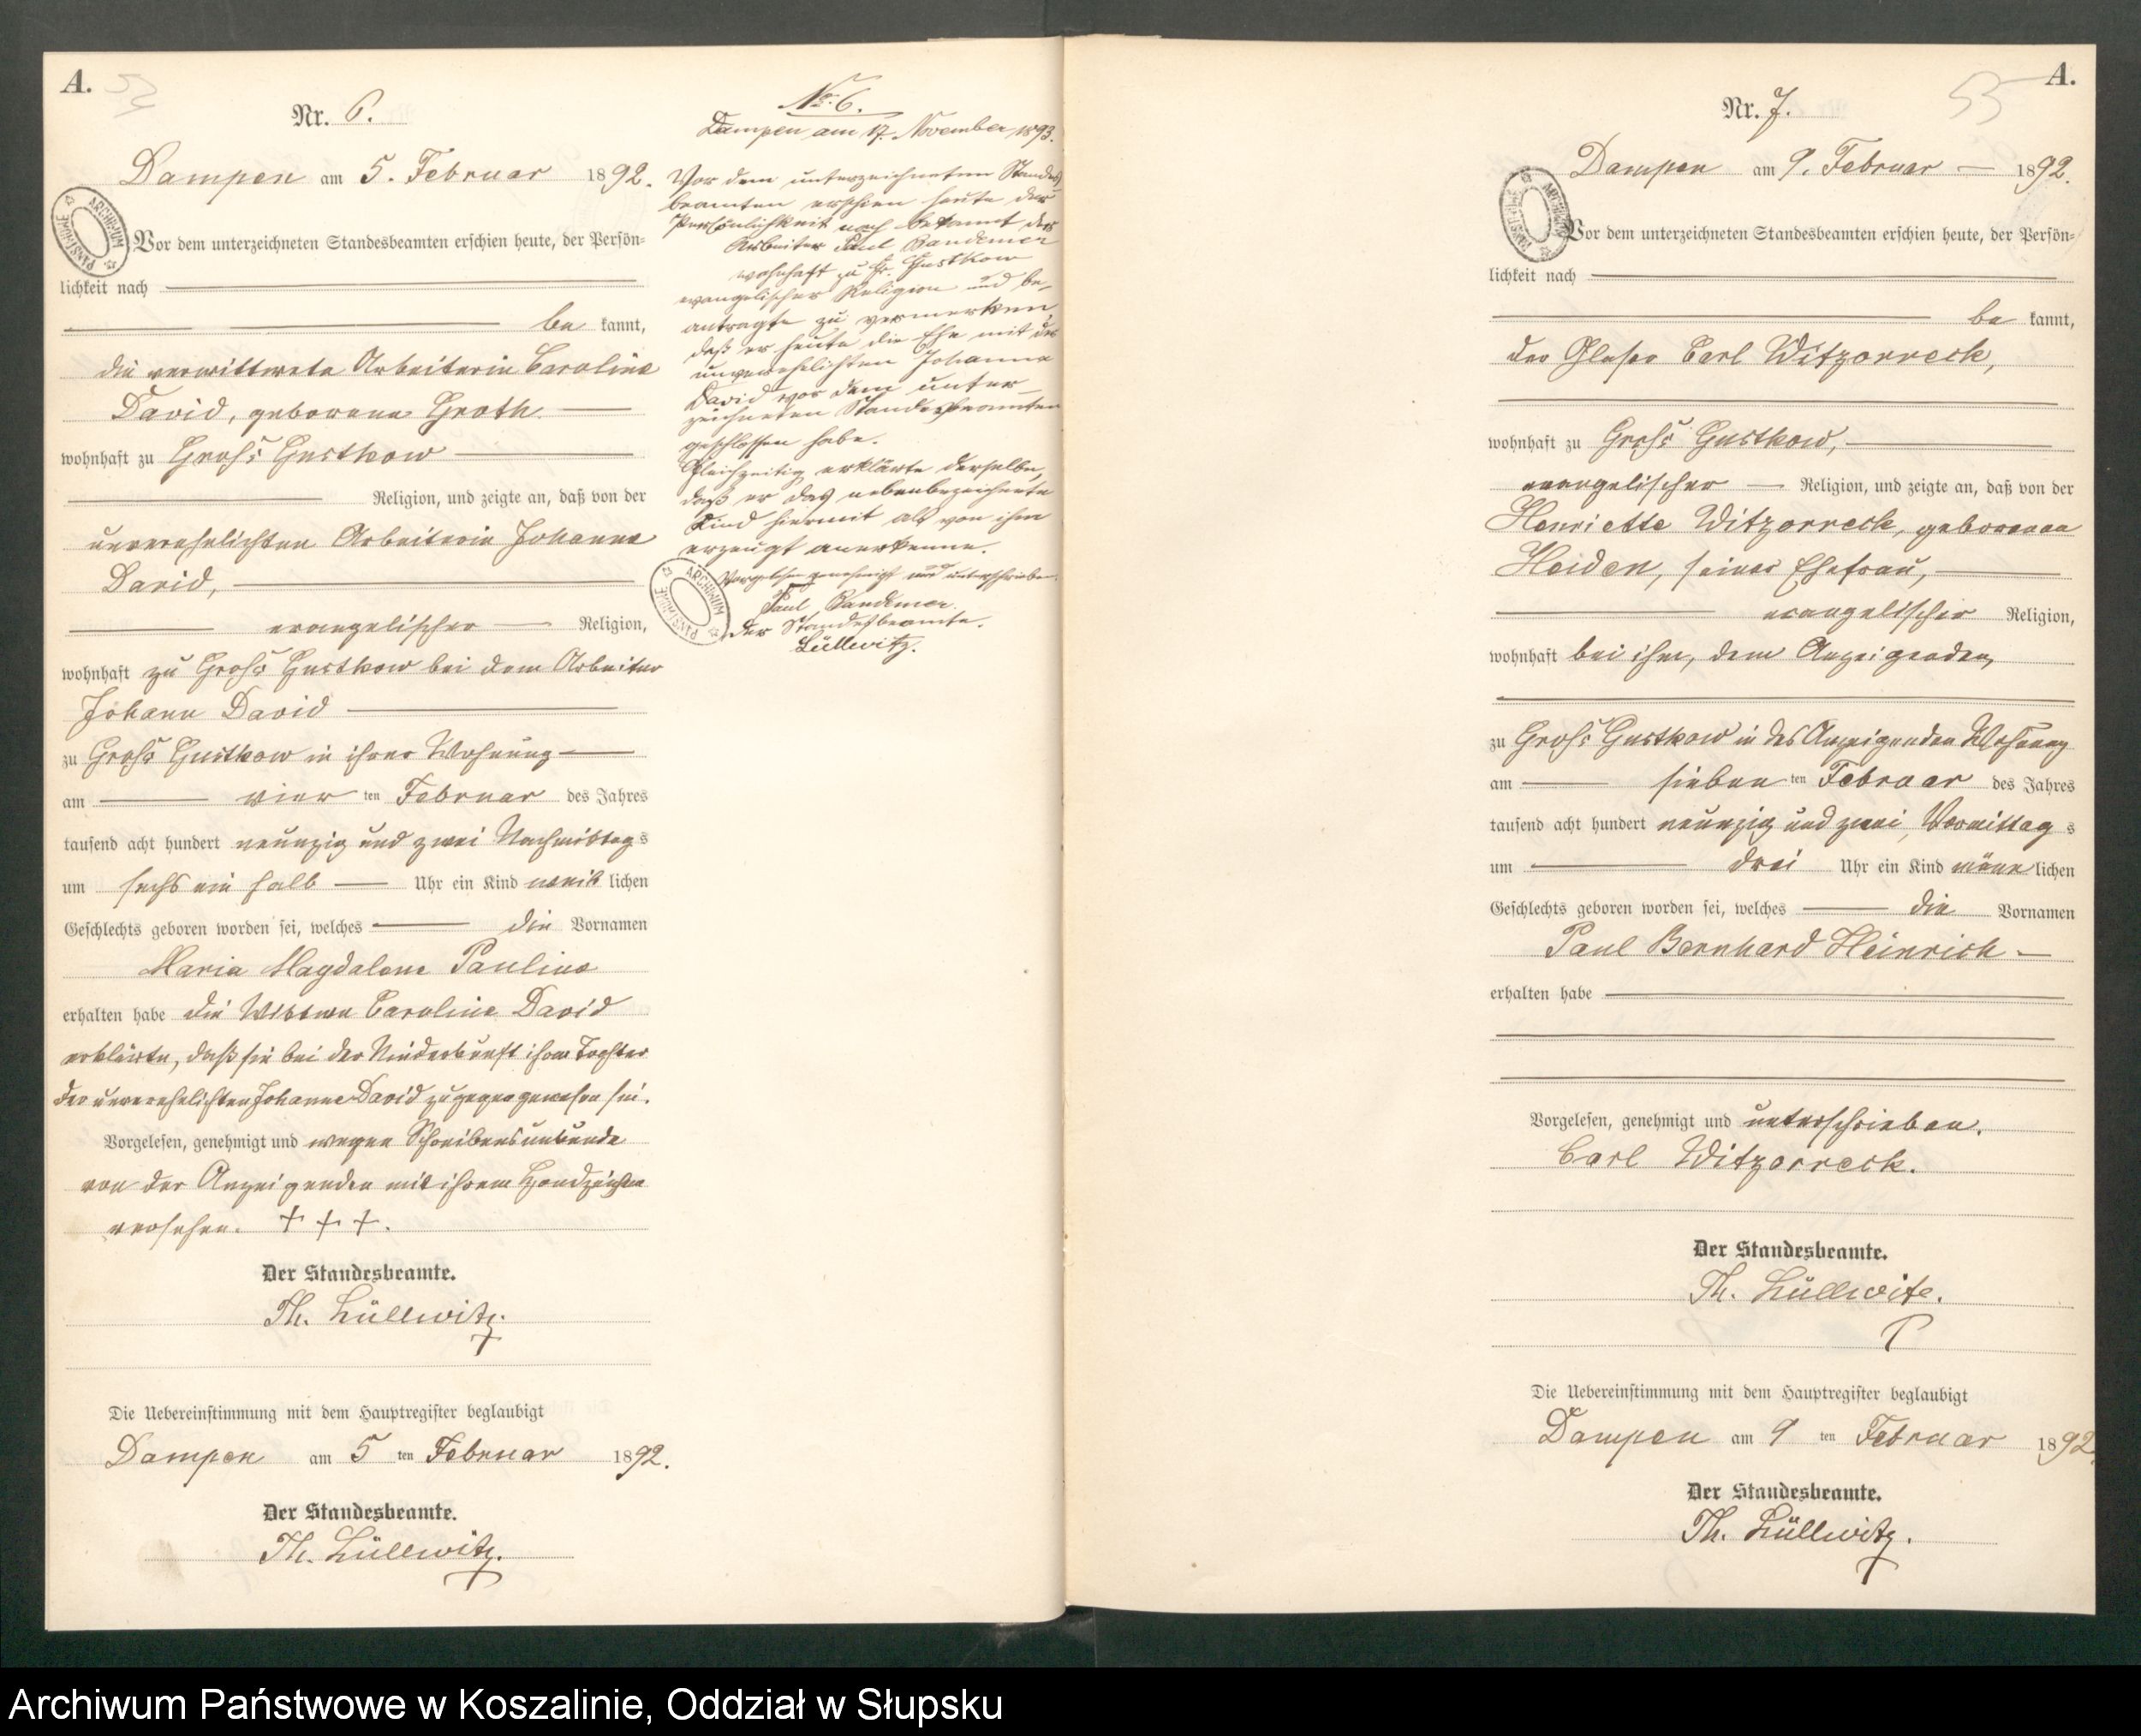 A.
Nr. 6.
Dampen am 5. Februar 1892.
Vor dem unterzeichneten Standesbeamten erschien heute, der Persön-
lichkeit nach
be kannt,
die verwittwete Arbeiterin Caroline
David, geborene Groth
wohnhaft zu Groß Gustkow
Religion, und zeigte an, daß von der
unverehelichten Arbeiterin Johanne
David,
evangelischer Religion,
wohnhaft zu Groß Gustkow bei dem Arbeiter
Johann David
zu Groß Gustkow in ihrer Wohnung
am vier ten Februar des Jahres
tausend acht hundert neunzig und zwei Nachmittags
um sechs ein halb Uhr ein Kind weib lichen
Geschlechts geboren worden sei, welches die Vornamen
Maria Magdalene Pauline
erhalten habe die Wittwe Caroline David
erklärte, daß sie bei der Niederkunft ihrer Tochter
der unverehelichten Johanne David zugegen gewesen sei.
Vorgelesen, genehmigt und wegen Schreibensunkunde
von der Anzeigenden mit ihrem Handzeichen
versehen. + + +.
Der Standesbeamte.
Th. Lüllwitz.
Die Uebereinstimmung mit dem Hauptregister beglaubigt
Dampen am 5 ten Februar 1892.
Der Standesbeamte.
Th. Lüllwitz.
No. 6.
Dampen am 17. November 1893.
Vor dem unterzeichneten Standes
beamten erschien heute der
Persönlichkeit nach bekannt der
Arbeiter Paul Bandemer
wohnhaft zu Gr. Gustkow
evangelischer Religion und be-
antragte zu vermerken,
daß er heute die Ehe mit der
unverehelichten Johanne
David vor dem unter-
zeichneten Standesbeamten
geschlossen habe.
Gleichzeitig erklärte derselbe,
daß er das nebenbezeichnete
Kind hiermit als von ihm
erzeugt anerkenne.
Vorgelesen genehmigt und unterschrieben.
Paul Bandemer.
Der Standesbeamte.
Lüllwitz.
ARCHIWUM PAŃSTWOWE
A.
55
Nr. 7.
Dampen am 9. Februar 1892.
Vor dem unterzeichneten Standesbeamten erschien heute, der Persön-
lichkeit nach
be kannt,
der Glaser Carl Witzorreck,
wohnhaft zu Groß Gustkow,
evangelischer Religion, und zeigte an, daß von der
Henriette Witzorreck, geborenen
Heiden, seiner Ehefrau,
evangelischer Religion,
wohnhaft bei ihm, dem Anzeigenden,
zu Groß Gustkow in des Anzeigenden Wohnung
am sieben ten Februar des Jahres
tausend acht hundert neunzig und zwei, Vormittag s
um drei Uhr ein Kind männ lichen
Geschlechts geboren worden sei, welches die Vornamen
Paul Bernhard Heinrich
erhalten habe
Vorgelesen, genehmigt und unterschrieben.
Carl Witzorreck.
Der Standesbeamte.
Th. Lüllwitz.
Die Uebereinstimmung mit dem Hauptregister beglaubigt
Dampen am 9 ten Februar 1892.
Der Standesbeamte.
Th. Lüllwitz.
Archiwum Państwowe w Koszalinie, Oddział w Słupsku